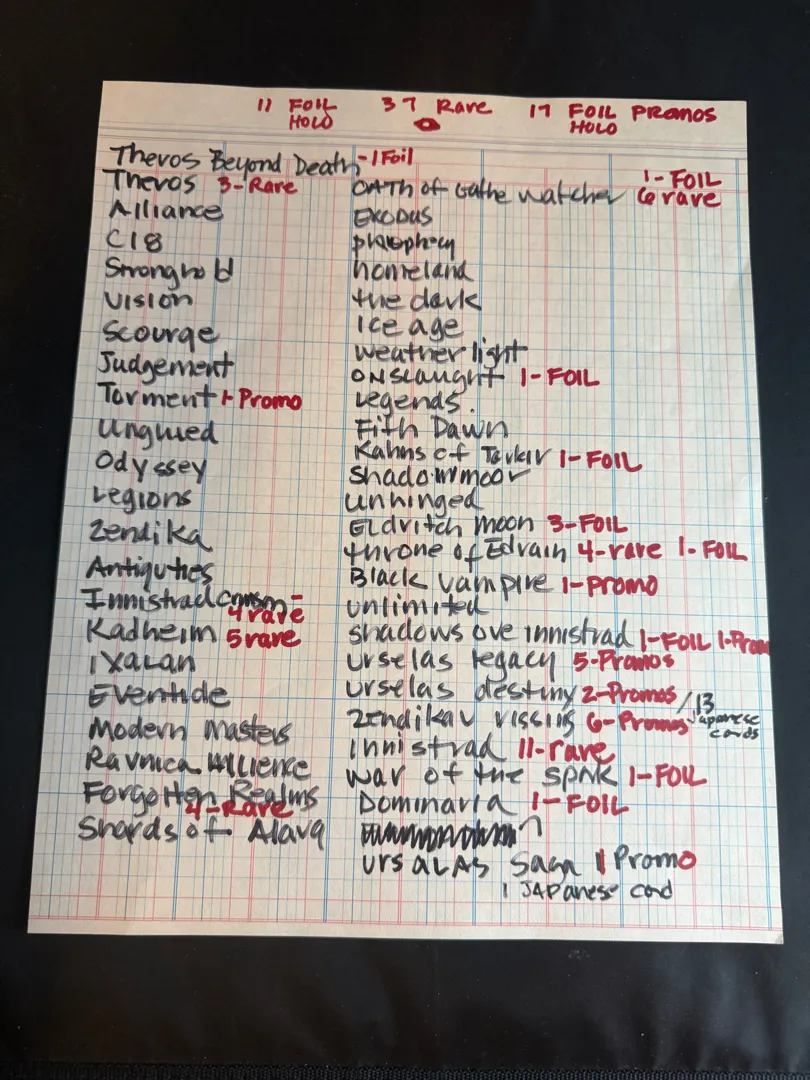 11 FOIL HOLO 37 Rare 17 FOIL PROMOS HOLO
Thevos Beyond Death -1 Foil
Thevos 3-Rare
Alliance
C18
Stronghold
Vision
Scourge
Judgement
Torment 1-Promo
Unglued
Odyssey
Legions
Zendika
Antiquties
Innistrad 4 rare
Kadheim 5 rare
IXALAN
Eventide
Modern Masters
Ravnica Allience
Forgotten Realms
4-Rare
Shards of Alava
OATH of Gathe Watcher 1-FOIL 6 rare
EXODUS
homeland
the dark
Ice age
weather light
ONSLAUGHT 1-FOIL
Legends.
Fith Dawn
Kahns of Tarkir 1-FOIL
Shadowmoor
unhinged
ELdritch moon 3-FOIL
throne of Edrain 4-rare 1-FOIL
Black vampire 1-promo
unlimited
shadows ove innistrad 1-FOIL 1-Prom
urselas legacy 5-Promos
urselas destiny 2-Promos / 13 Japanese cards
Zendikav rissing 6-Promos
innistrad 11-rare
war of the 1-FOIL
Dominaria 1-FOIL
ursaLAs Saga 1 Promo
1 JAPanese card